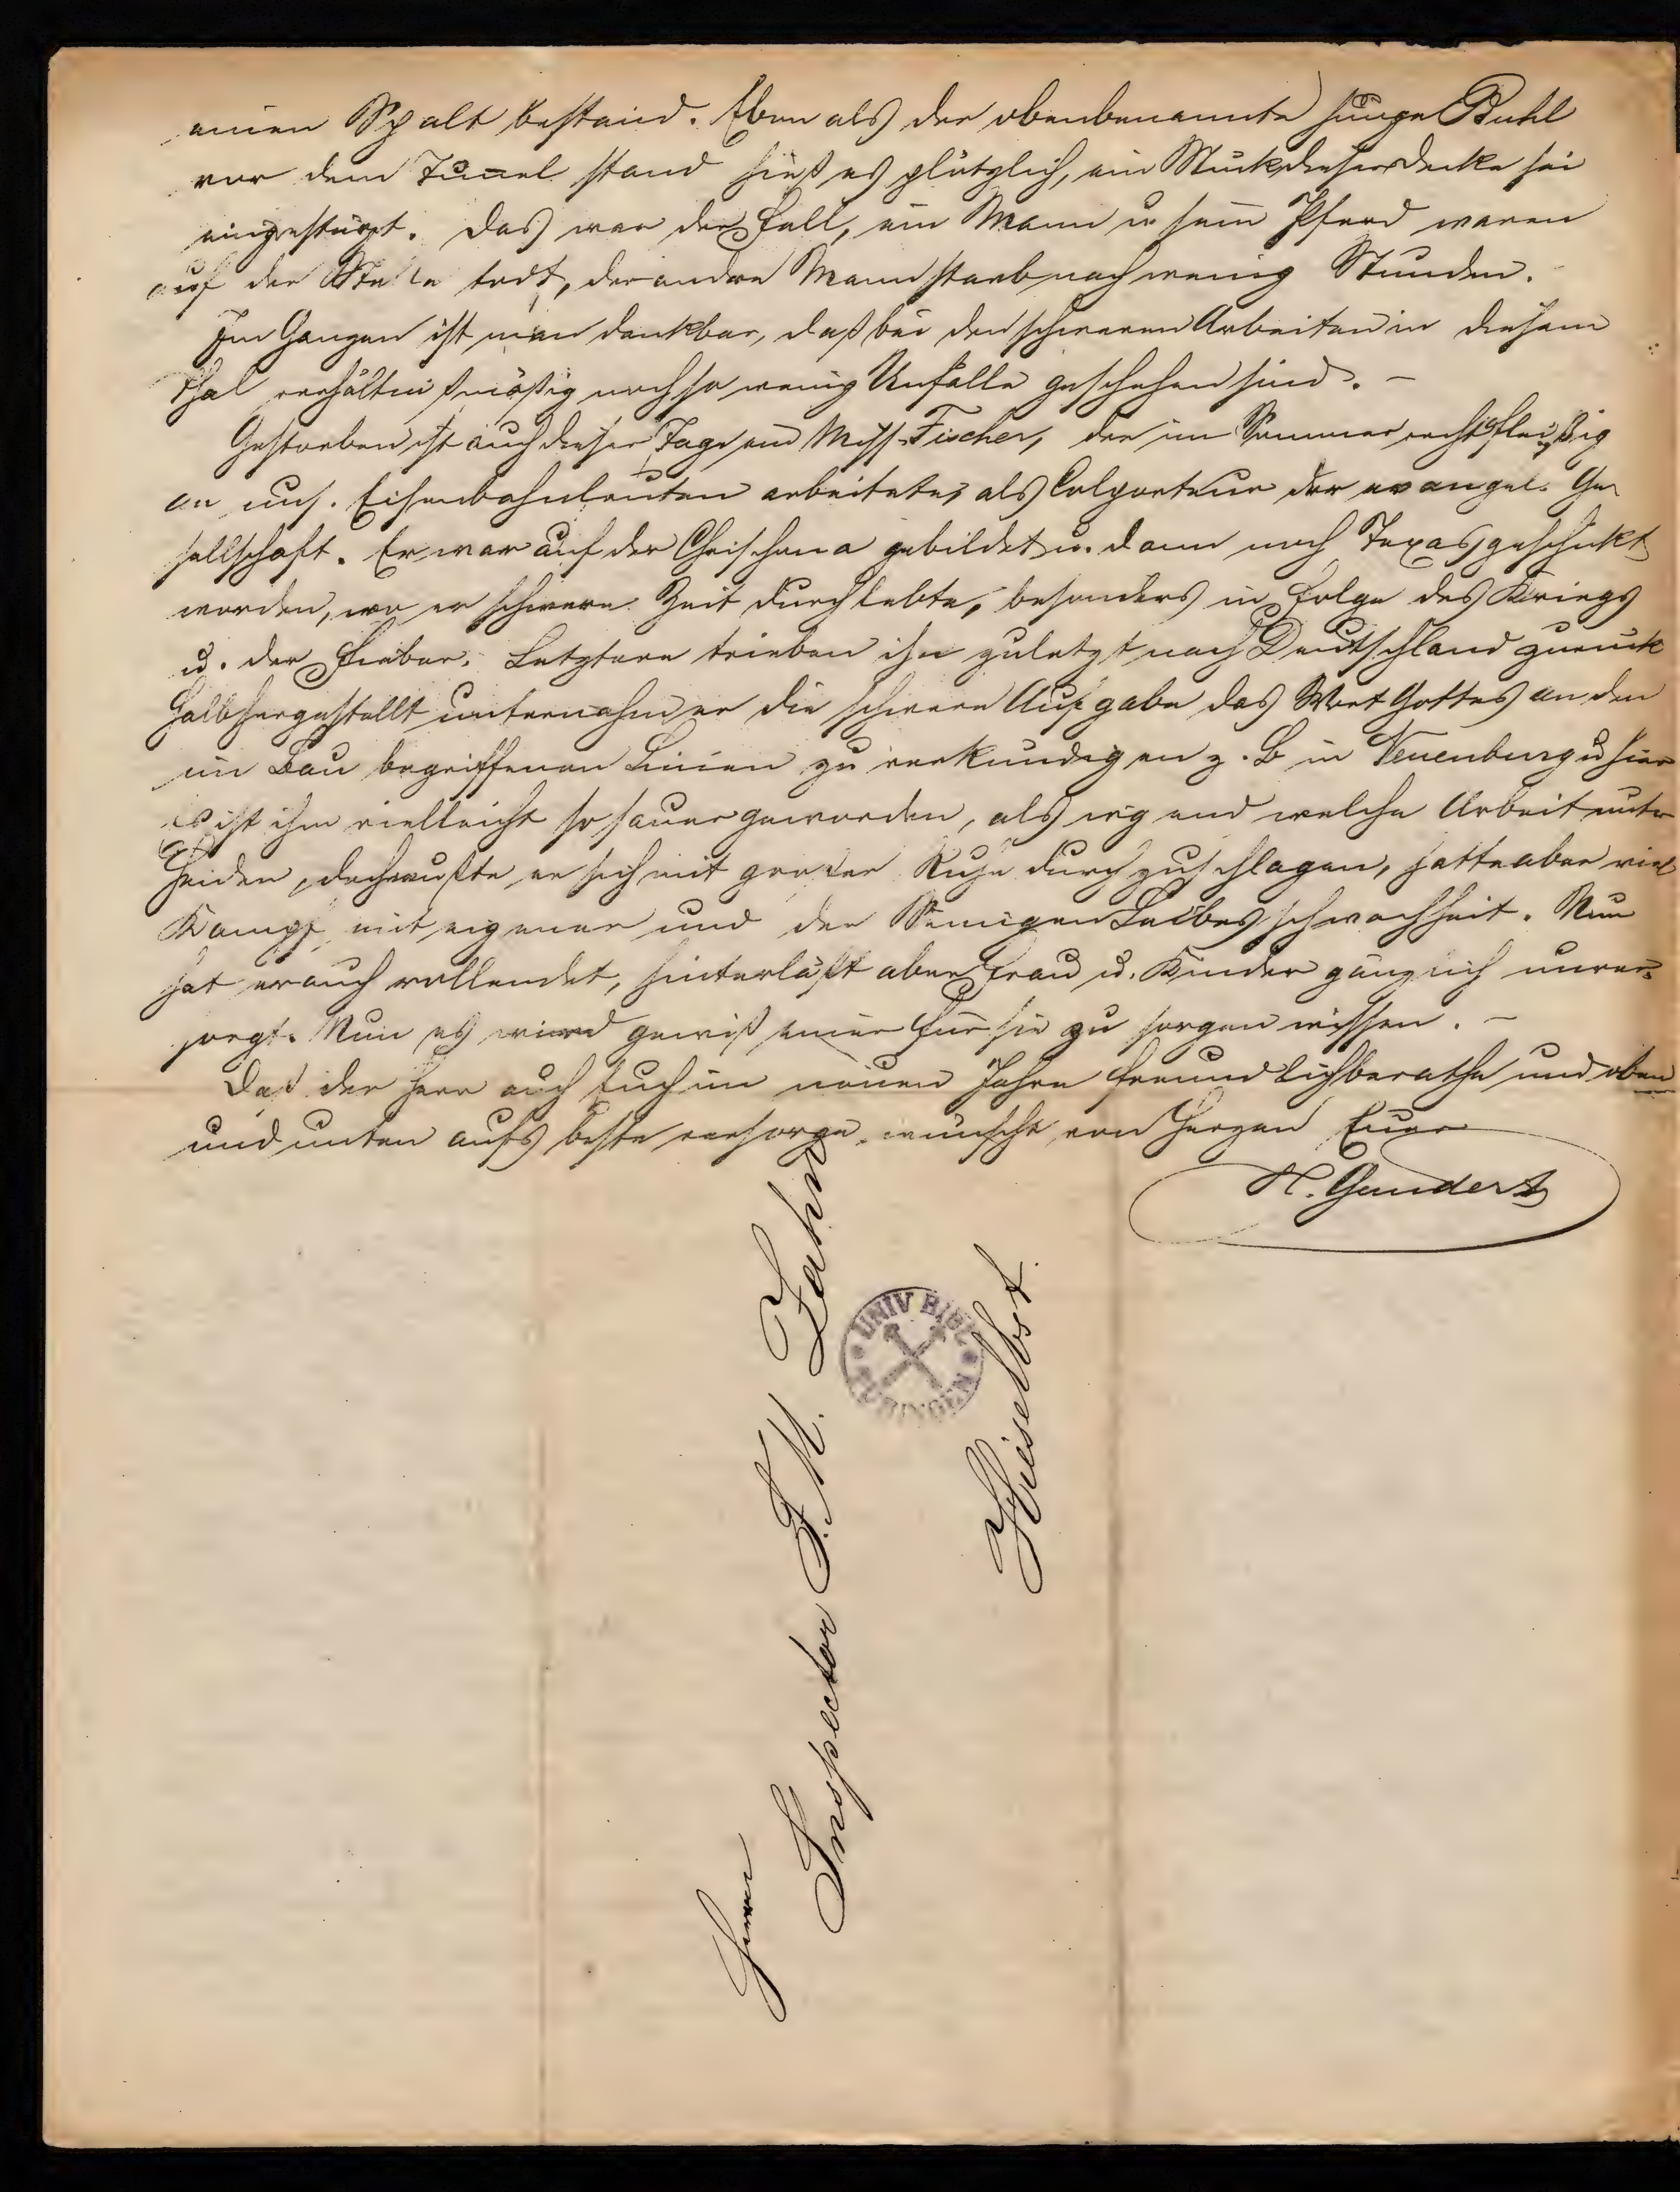 einen Spalt bestand. Eben als der obenbenannte junge Buhl
vor dem Tunel stand hieß es plötzlich, ein Stück dieser Decke sei
eingestürzt. Das war der Fall, ein Mann u. sein Pferd waren
auf der Stelle todt, der andre Mann starb nach wenig Stunden.
Im Ganzen ist man dankbar, daß bei den schweren Arbeiten in diesem
Thal verhältnißmäßig noch so wenig Unfälle geschehen sind. –
Gestorben ist auch dieser Tage ein Miss. Fischer, der im Sommer recht fleißig
an uns. Eisenbahnleuten arbeitete, als Colporteur der evangel. Ge-
sellschaft. Er war auf der Chrischona gebildet u. dann nach Texas geschickt
worden, wo er schwere Zeit durchlebte, besonders in Folge des Kriegs
u. der Fieber. Letztere trieben ihn zuletzt nach Deutschland zurück
Halbhergestellt unternahm er die schwere Aufgabe das Wort Gottes an den
im Bau begriffenen Linien zu verkündigen z. B in Neuenburg u hier
Es ist ihm vielleicht so sauer geworden, als irgend welche Arbeit unter
Heiden, doch wußte er sich mit großer Ruhe durchzuschlagen, hatte aber viel
Kampf mit eigener und der Seinigen Leibesschwachheit. Nun
hat er auch vollendet, hinterläßt aber Frau u. Kinder gänzlich unver-
sorgt. Nun es wird gewiß einer für sie zu sorgen wissen. –
Daß der Herr auch Euch im neuen Jahre freundlich berathe und oben
und unten aufs beste versorge, wünscht von Herzen Euer
H. Gundert
Herrn
Inspector F. M. Zahn
Hieselbst.
UNIV BIBL TUBINGEN